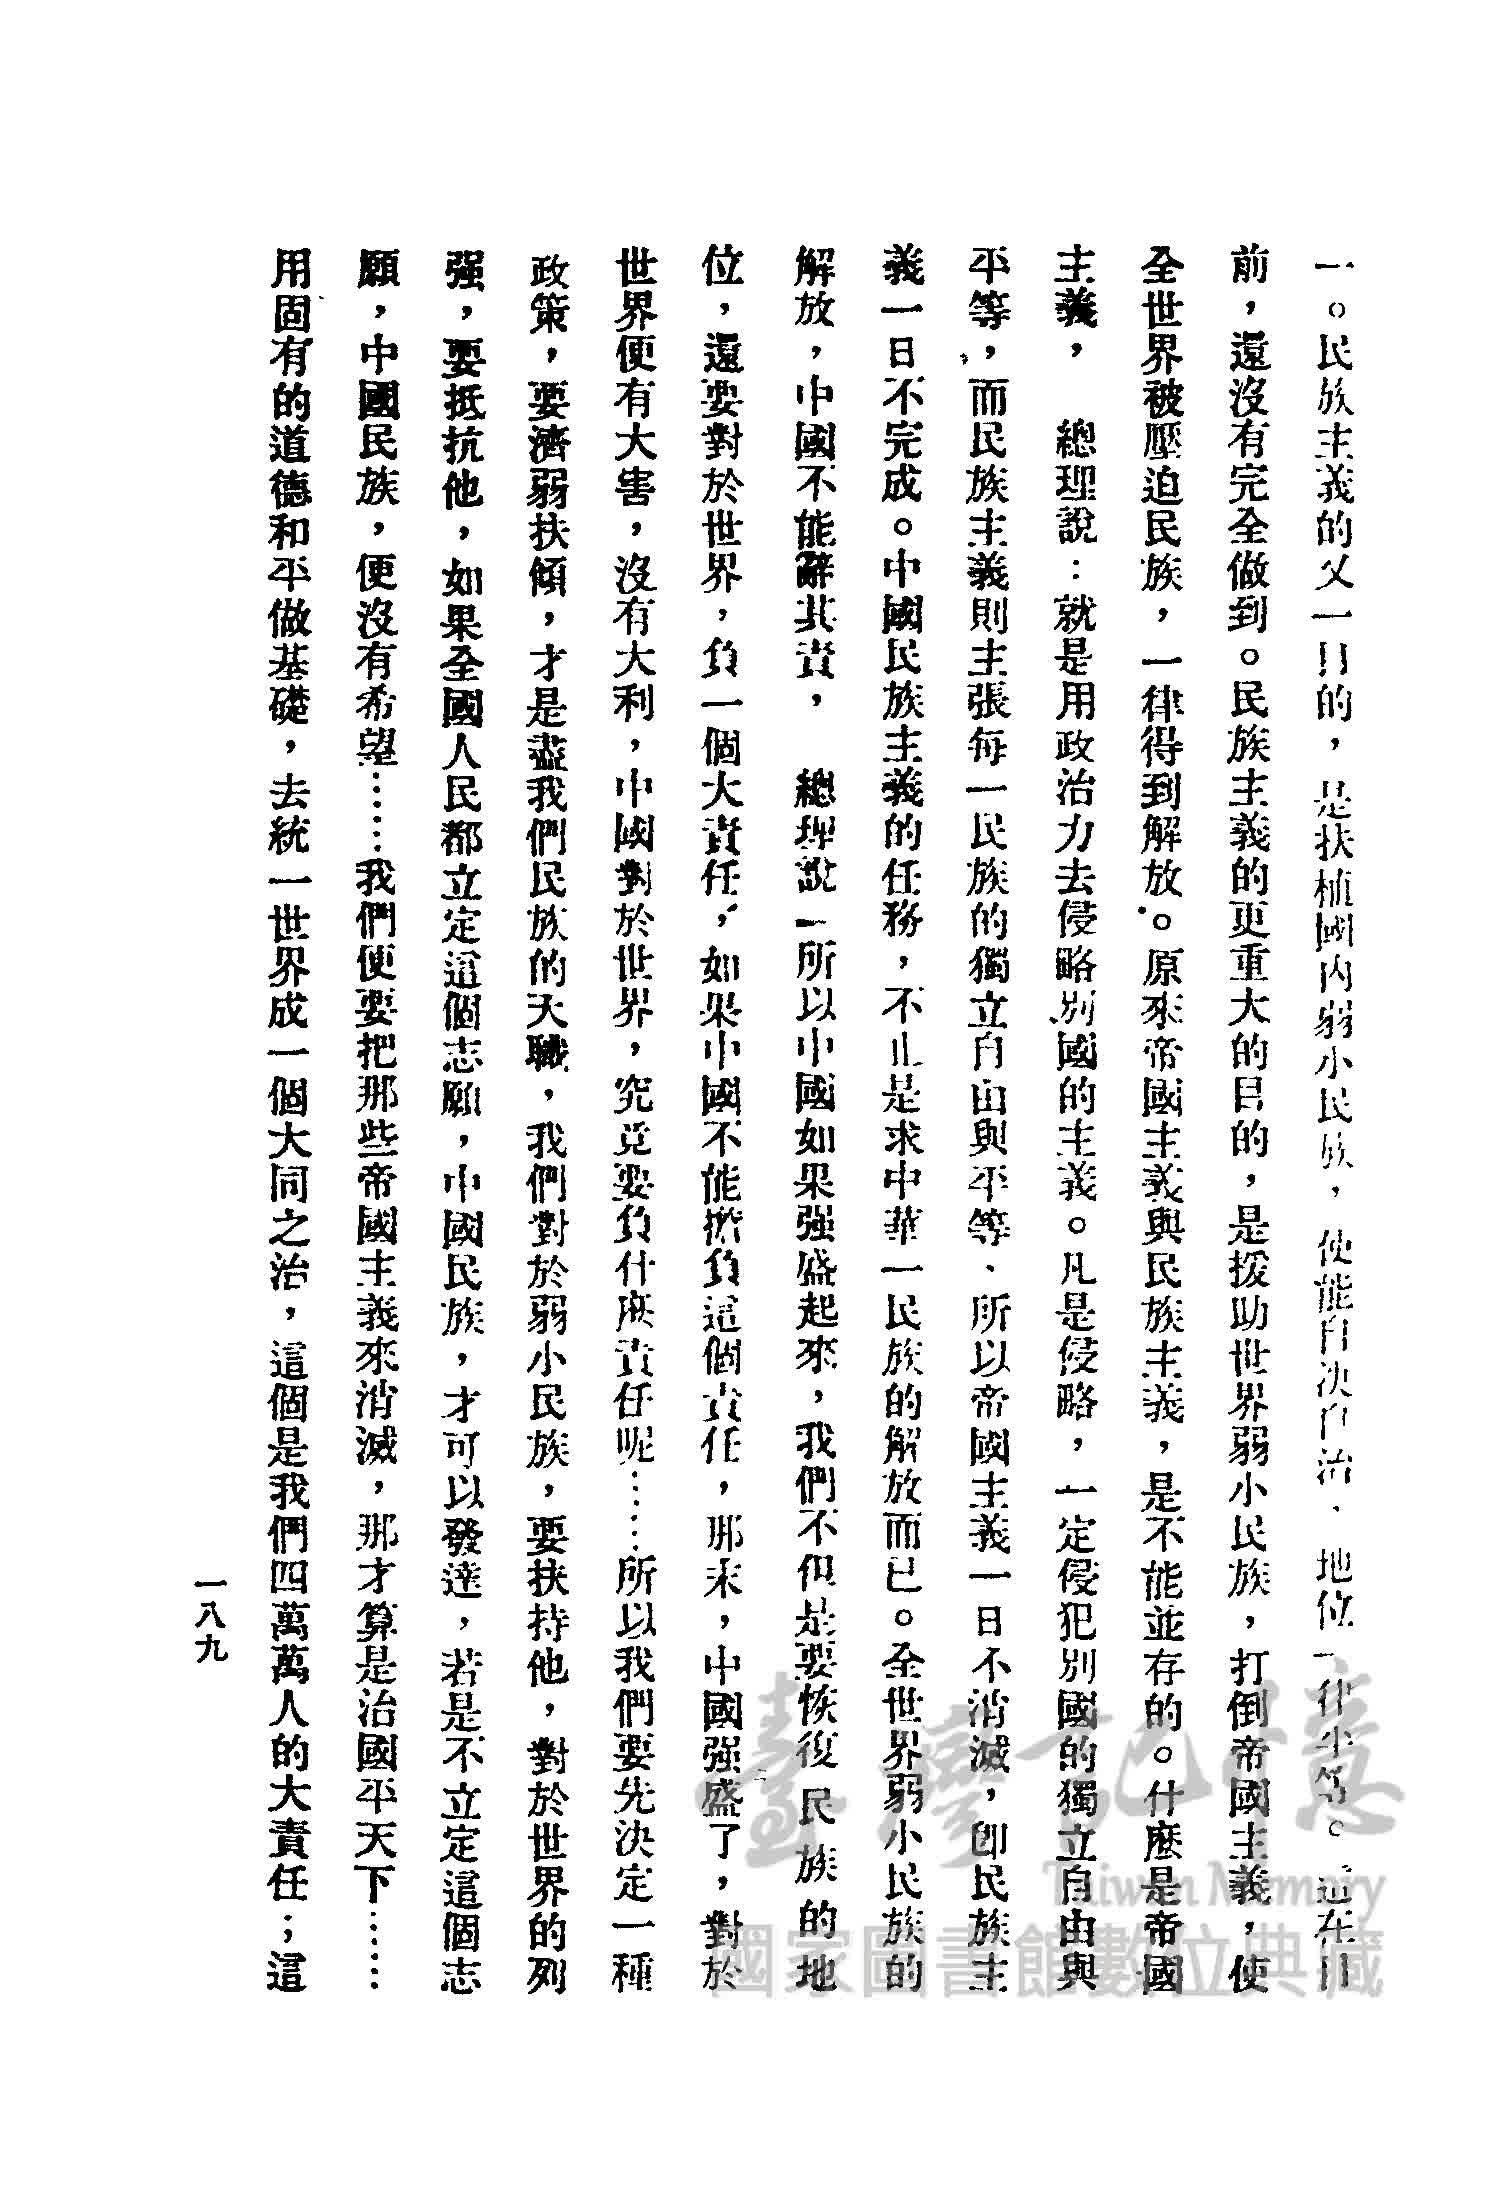 一。民族主義的又一目的，是扶植國內弱小民族，使能自決自治、地位一律平等。這在目
前，還沒有完全做到。民族主義的更重大的目的，是援助世界弱小民族，打倒帝國主義，使
全世界被壓迫民族，一律得到解放。原來帝國主義與民族主義，是不能並存的。什麼是帝國
主義，　總理說：就是用政治力去侵略別國的主義。凡是侵略，一定侵犯別國的獨立自由與
平等，而民族主義則主張每一民族的獨立自由與平等、所以帝國主義一日不消滅，卽民族主
義一日不完成。中國民族主義的任務，不止是求中華一民族的解放而已。全世界弱小民族的
解放，中國不能辭其責，　總理說「所以中國如果强盛起來，我們不但是要恢復民族的地
位，還要對於世界，負一個大責任，如果中國不能擔負這個責任，那末，中國强盛了，對於
世界便有大害，沒有大利，中國對於世界，究竟要負什麽責任呢……所以我們要先決定一種
政策，要濟弱扶傾，才是盡我們民族的天職，我們對於弱小民族，要扶持他，對於世界的列
强，要抵抗他，如果全國人民都立定這個志願，中國民族，才可以發達，若是不立定這個志
願，中國民族，便沒有希望……我們便要把那些帝國主義來消滅，那才算是治國平天下……
用固有的道德和平做基礎，去統一世界成一個大同之治，這個是我們四萬萬人的大責任；這
一八九
臺灣記憶
Taiwan Memory
國家圖書館數位典藏